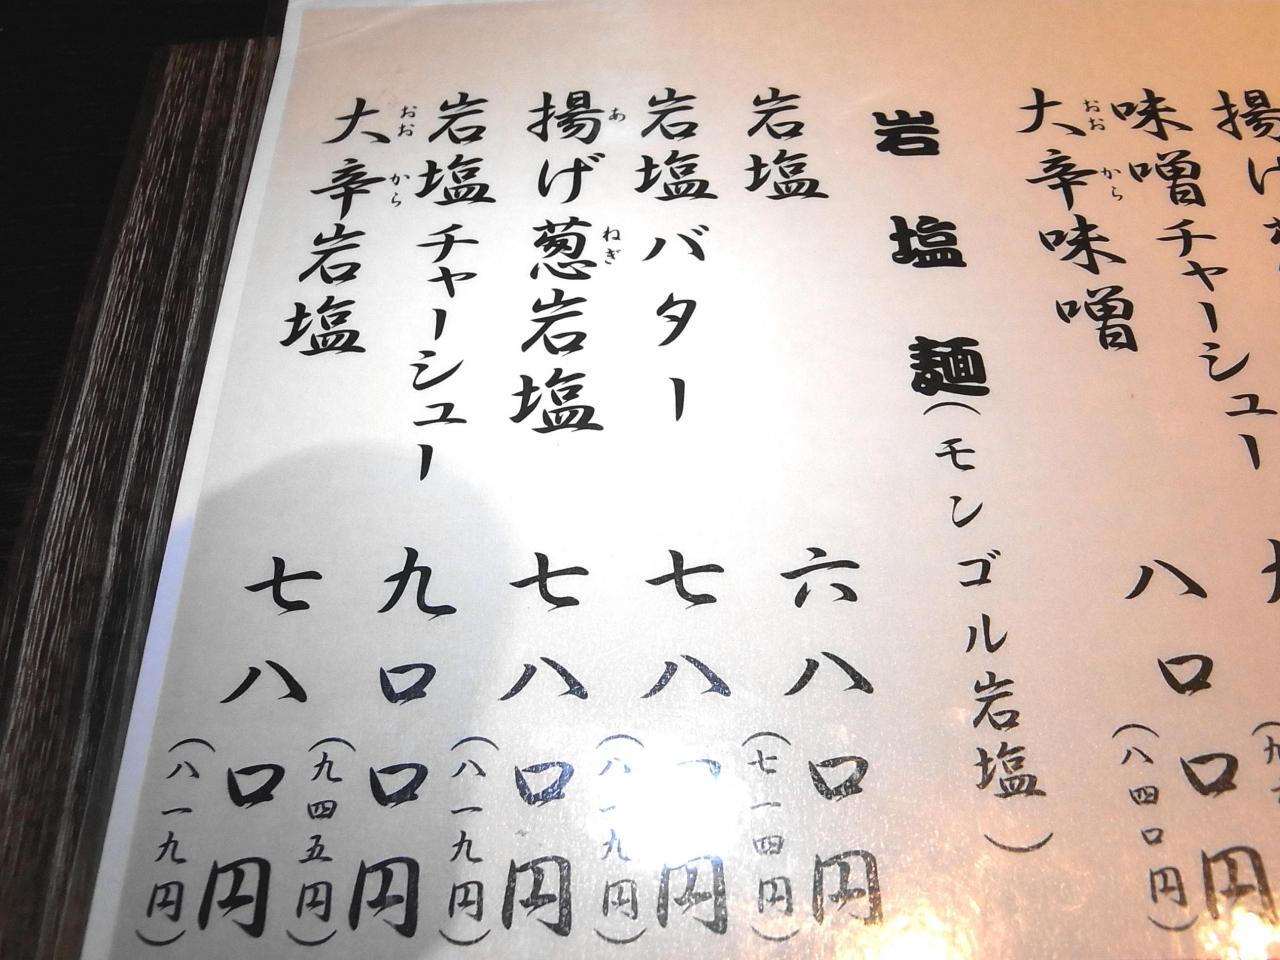 味噌チャーシュー
大辛味噌 八〇〇円
おお から
(八四〇円)
岩塩麺(モンゴル岩塩)
岩塩 六八〇円
(七一四円)
岩塩バター 七八〇円
(八一九円)
揚げ葱岩塩 七八〇円
あ ねぎ
(八一九円)
岩塩チャーシュー 九〇〇円
(九四五円)
大辛岩塩 七八〇円
おお から
(八一九円)